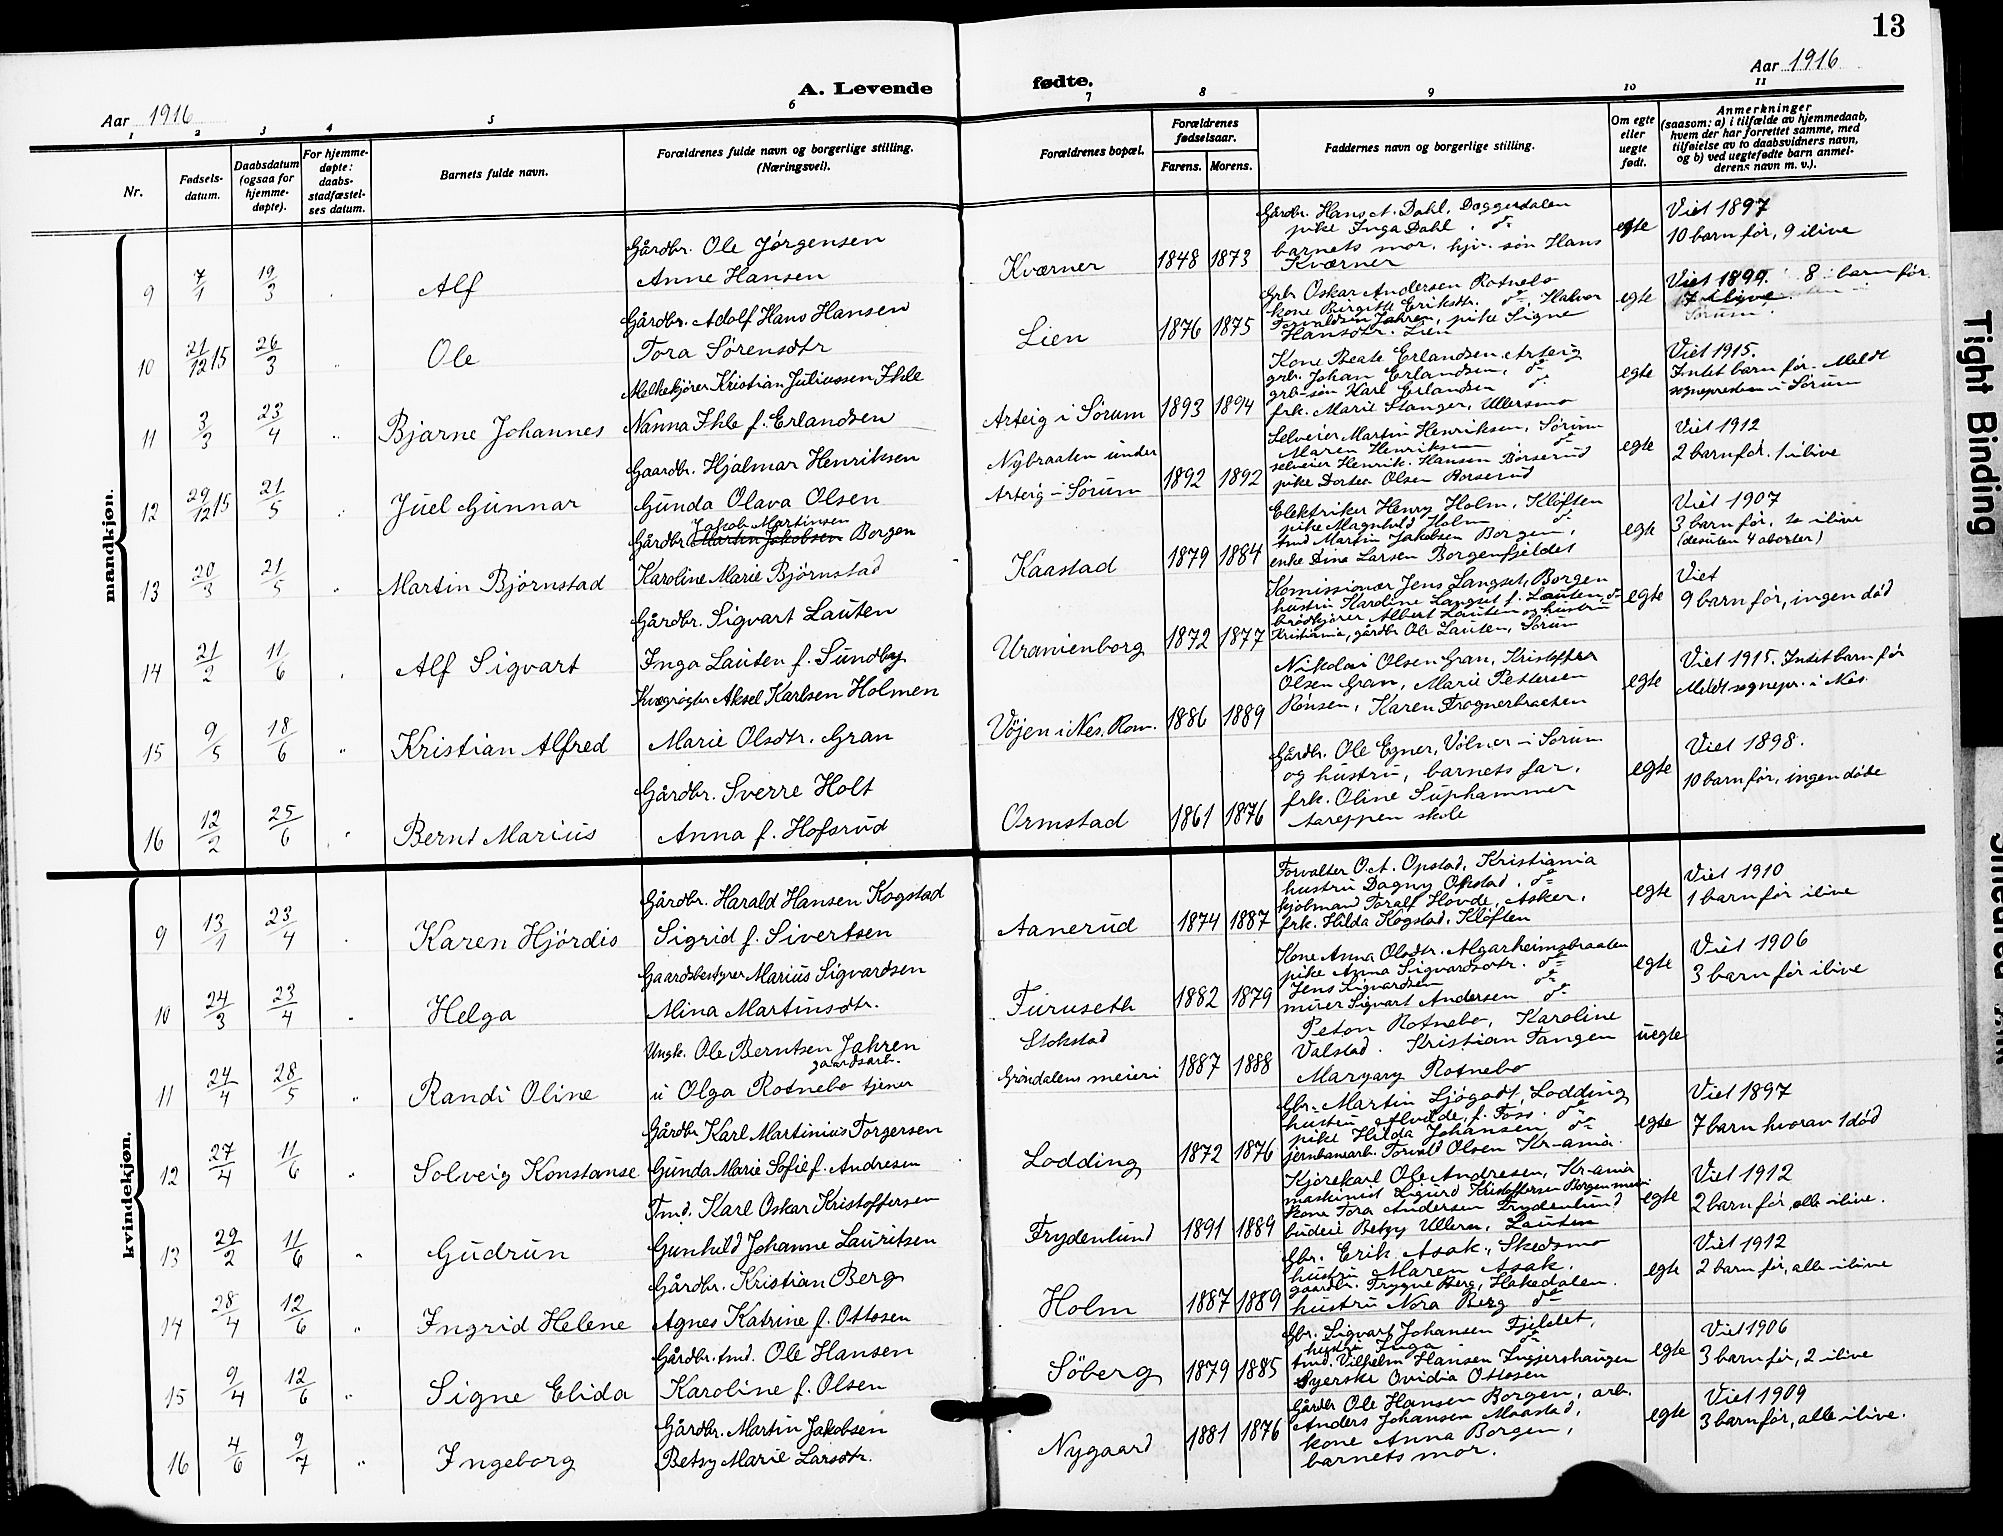 13
Aar 1916
A. Levende
fødte.
Aar 1916
1 2 3 4 5 6 7 8 9 10 11
Nr.
Fødsels-
datum.
Daabsdatum
(ogsaa for
hjemme-
døpte).
For hjemme-
døpte:
daabs-
stadfæstel-
ses datum.
Barnets fulde navn.
Forældrenes fulde navn og borgerlige stilling.
(Næringsvei).
Forældrenes bopæl.
Forældrenes
fødselsaar.
Farens. Morens.
Faddernes navn og borgerlige stilling.
Om egte
eller
uegte
født.
Anmerkninger
(saasom: a) i tilfælde av hjemmedaab,
hvem der har forrettet samme, med
tilføielse av to daabsvidners navn,
og b) ved uegtefødte barn anmel-
derens navn m. v.).
mandkjøn.
9 7/1 19/3 Alf
Gårdbr. Ole Jørgensen
Anne Hansen
Kværner 1848 1873
Gårdbr. Hans A. Dahl, Doggerdalen
pike Inga Dahl, do
barnets mor, hjv. søn Hans
Kværner
egte
Viet 1897
10 barn før, 9 ilive
10 21/12 15 26/3 Ole
Gårdbr. Adolf Hans Hansen
Tora Sørensdtr
Lien 1876 1875
Grbr Oskar Andersen Rotnebo
kone Birgitte Eriksdtr. do, Halvor
Torvaldsen Jahren, pike Signe
Hansdtr. Lien
egte
Viet 1899. 8 barn før.
17 ilive
Sørum.
11 3/3 23/4 Bjarne Johannes
Melkekjører Kristian Juliussen Ihle
Nanna Ihle f. Erlandsen
Arteig i Sørum 1893 1894
Kone Beate Erlandsen Arteig
grbr. Johan Erlandsen, do
grbr søn Karl Erlandsen do
frk. Marie Stanger, Ullersmo
egte
Viet 1915.
Intet barn før. Meldt
sognepresten i Sørum
12 29/12 15 21/5 Juel Gunnar
Gaardbr. Hjalmar Henriksen
Gunda Olava Olsen
Nybraaten under
Arteig i Sørum 1892 1892
Selveier Martin Henriksen, Sørum
Maren Henriksen do
selveier Henrik Hansen Børserud
pike Dortea Olsen Børserud
egte
Viet 1912
2 barn før. 1 ilive
13 20/3 21/5 Martin Bjørnstad
Jakob Martinsen
Gårdbr Martin Jakobsen Borgen
Karoline Marie Bjørnstad
Kaastad 1879 1884
Elektriker Henry Holm, Kløften
pike Magnhild Holm do
tmd Martin Jakobsen Borgen,
enke Dina Larsen Borgenfjeldet
egte
Viet 1907
3 barn før, 2 ilive
(desuten 4 aborter)
14 21/2 11/6 Alf Sigvart
Gårdbr. Sigvart Lauten
Inga Lauten f. Sundby
Uranienborg 1872 1877
Komissionær Jens Langset, Borgen
hustru Karoline Langset f. Lauten do
brødkjører Albert Lauten og hustru
Kristiania, gårdbr Ole Lauten, Sørum
egte
Viet
9 barn før, ingen død
15 9/5 18/6 Kristian Alfred
Kvægrøgter Aksel Karlsen Holmen
Marie Olsdtr. Gran
Vöjen i Nes, Rom. 1886 1889
Nikolai Olsen Gran, Kristoffer
Olsen Gran, Marie Pettersen
Rønsen, Karen Frognerbraaten
egte
Viet 1915. Intet barn før
Meldt sognepr. i Nes
16 12/2 25/6 Bernt Marius
Gårdbr. Sverre Holt
Anna f. Hofsrud
Ormstad 1861 1876
Gårdbr. Ole Egner, Völner i Sørum
og hustru, barnets far,
frk. Oline Suphammer
Aareppen skole
egte
Viet 1898.
10 barn før, ingen døde
kvindekjøn.
9 13/1 23/4 Karen Hjördis
Gårdbr. Harald Hansen Kogstad
Sigrid f. Sivertsen
Aanerud 1874 1887
Forvalter O. A. Opstad, Kristiania
hustru Dagny Opstad, do
kjøbmand Toralf Hovde, Asker,
frk. Hilda Kogstad, Kløften
egte
Viet 1910
1 barn før ilive
10 24/3 23/4 Helga
Gaardsbestyrer Marius Sigvardsen
Mina Martinsdtr.
Furuseth 1882 1879
Kone Anna Olsdtr. Algarheimsbraaten
pike Anna Sigvardsdtr. do
Jens Sigvardsen do
murer Sigvart Andersen do
egte
Viet 1906
3 barn før ilive
11 24/4 28/5 Randi Oline
Ungk. Ole Berntsen Jahren
gaardsarb.
u Olga Rotnebo tjener
Stokstad
Gröndalens meieri 1887 1888
Peton Rotnebo, Karoline
Valstad. Kristian Tangen
Margary Rotnebo
uegte
12 27/4 11/6 Solveig Konstanse
Gårdbr Karl Martinius Torgersen
Gunda Marie Sofie f. Andresen
Lodding 1872 1876
Gbr. Martin Sjögodt, Lodding
hustru Alvilde, f. Foss. do
pike Hilda Johansen do
jernbanearb. Torvald Olsen Kr-ania
egte
Viet 1897
7 barn hvorav 1 død
13 29/2 11/6 Gudrun
Tmd. Karl Oskar Kristoffersen
Gunhild Johanne Lauritsen
Frydenlund 1891 1889
Kjørekarl Ole Andresen, Kr-ania
maskinist Sigurd Kristoffersen Borgen meieri
kone Tora Andersen Frydenlund
budeie Betzy Ullern, Lauten
egte
Viet 1912
2 barn før, alle ilive.
14 28/4 12/6 Ingrid Helene
Gårdbr. Kristian Berg
Agnes Katrine f. Ottosen
Holm 1887 1889
Gbr. Erik Asak, Skedsmo
hustru Maren Asak.
gaardbr. Trygve Berg, Hakedalen.
hustru Nora Berg do
egte
Viet 1912
2 barn før, alle ilive
15 9/4 12/6 Signe Elida
Gårdbr. tmd. Ole Hansen
Karoline f. Olsen
Söberg 1879 1885
Gbr. Sigvart Johansen Fjeldet,
hustru Inga do
tmd. Vilhelm Hansen Ingjershaugen
Syerske Ovidia Ottosen
egte
Viet 1906
3 barn før, 2 ilive
16 4/6 9/7 Ingeborg
Gårdbr. Martin Jakobsen
Betsy Marie Larsdtr.
Nygaard 1881 1876
Gårdbr Ole Hansen Borgen, arb.
Anders Johansen Maastad,
kone Anna Borgen,
barnets mor.
egte
Viet 1909
3 barn før, alle ilive.
Tight Binding